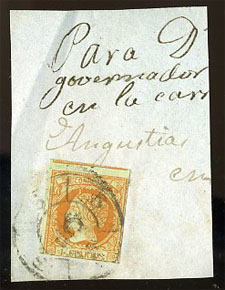 Para D
governador
en la carr
Angustias
en